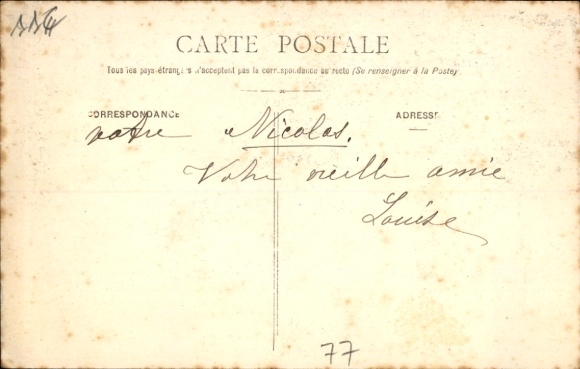 CARTE POSTALE
Tous les pays étrangers n'acceptent pas la correspondance au recto (Se renseigner à la Poste)
CORRESPONDANCE
ADRESSE
notre Nicolas.
Votre vieille amie
Louise
77